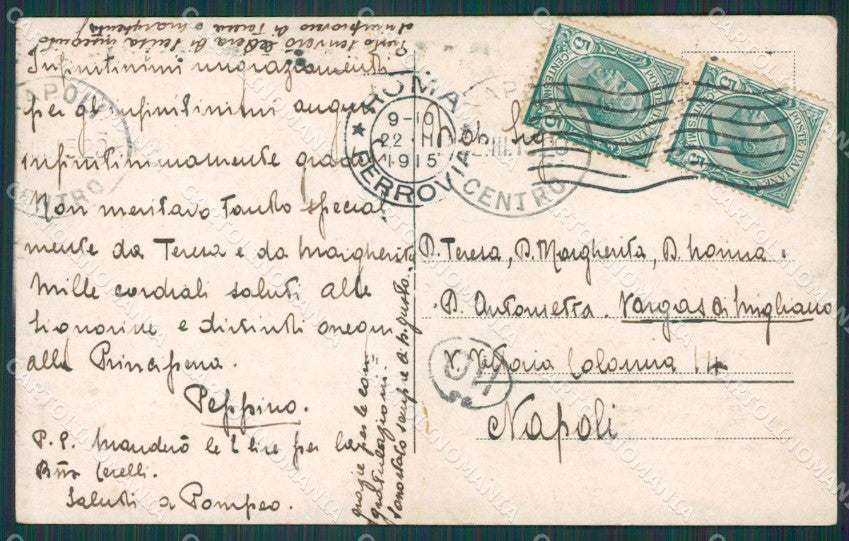 Infinitissimi ringraziamenti
per gl'infinitissimi auguri
infinitissimamente graditi
Non meritavo tanto special
mente da Teresa e da Margherita
Mille cordiali saluti alle
Signorine e distinti ossequi
alla Principessa.
Peppino.
P.S. Manderò le lire per la
Saluti a Pompeo.
grazie per le con-
gratulazioni.
sono stato sempre di pi gusto.
ROMA
9-10
22 · III
1915
FERROVIA
NAPOLI
CENTRO
CENTRO
POSTE ITALIANE
CENTESIMI
5
5
POSTE ITALIANE
CENTESIMI
5
5
Nob. Sig.
D. Teresa, D. Margherita, D. Nanna e
D. Antonietta. Vargas di Migliano
V. Vittoria Colonna 14
Napoli
CARTOLINOMANIA